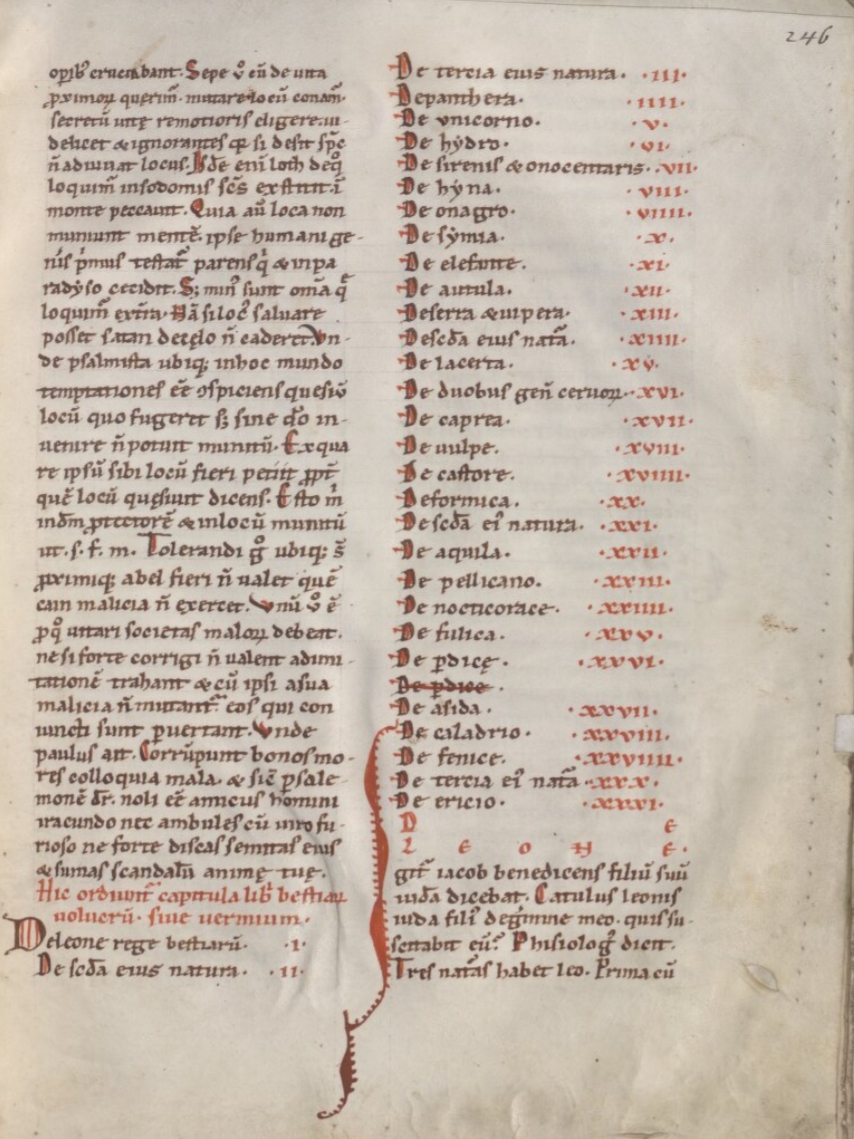 246
opib; cruciabant. Sepe ů cū de uita
ꝓximoꝝ querim̄. mutare locū conam̄.
secretū uitę remotioris eligere. ui-
delicet & ignorantes qꝫ si desit sp̄c
n̄ adiuuat locus. Ide eni loth de qͦ
loquim̄ in sodomis sc̄s extitit. ī
monte peccauit. Quia aū loca non
muniunt mentē. ipse humani ge-
nīs p̓mus testat̄ parens qͥ & in pa
radyso cecidit. S; min᷒ sunt om̄a q̄
loquim̄ ex t̓ra. Nā si locͦ saluare
posset satan de cęlo n̄ caderet. Vn-
de psalmista ubiq; in hoc mundo
temptationes eē ꝯspiciens quesiū
locū quo fugeret s; sine dōo in-
uenire n̄ potuit munitū. Ex qua
re ipsū sibi locū fieri petiit ꝓpt̄
quē locū quęsiuit dicens. Esto m̄
in dm̄ ꝓtectorē & in locū munitū
ut. s. f. m. Tolerandi gͦ ubiq; s̄
ꝓximi q; abel fieri n̄ ualet quē
cain malicia n̄ exercet. Vnū ů ē
ꝓ qͦ uitari societas maloꝝ debeat.
ne si forte corrigi n̄ ualent ad imi-
tationē trahant & cū ipsi a sua
malicia n̄ mutant̄ eos qui con
iuncti sunt ꝑuertant. Vnde
paulus ait. Corrūpunt bonos mo-
res colloquia mala. & sic̄ ꝑ sale-
monē dr̄. noli eē amicus homini
iracundo nec ambules cū uiro fu-
rioso ne forte discas semitas eius
& sumas scandalū animę tuę.
Hic ordiunt̄ capitula lib̓ bestiaꝝ
uolucrū. siue uermium.
De leone rege bestiarū. .I.
De sc̄da eius natura. .II.
De tercia eius natura. .III.
De panthera. .IIII.
De vnicorno. .V.
De hydro. .VI.
De sirenis & onocentaris. .VII.
De hyna. .VIII.
De onagro. .VIIII.
De symia. .X.
De elefante. .XI.
De autula. .XII.
De serra & uipera. .XIII.
De sc̄da eius nat̄a. .XIIII.
De lacerta. .XV.
De duobus gen̄ ceruoꝝ. .XVI.
De caprea. .XVII.
De uulpe. .XVIII.
De castore. .XVIIII.
De formica. .XX.
De sc̄da ei᷒ natura. .XXI.
De aquila. .XXII.
De pellicano. .XXIII.
De nocticorace. .XXIIII.
De fulica. .XXV.
De ꝑdicę. .XXVI.
De ꝑdice.
De asida. .XXVII.
De caladrio. .XXVIII.
De fenice. .XXVIIII.
De tercia ei᷒ nat̄a. .XXX.
De ericio. .XXXI.
D E
L E O N E.
git̄ iacob benedicens filiū suū
iuda dicebat. Catulus leonis
iuda fili de g̓mine meo. quis su-
scitabit eū? Phisiolog᷒ dicit.
Tres nat̄as habet leo. Prima cū